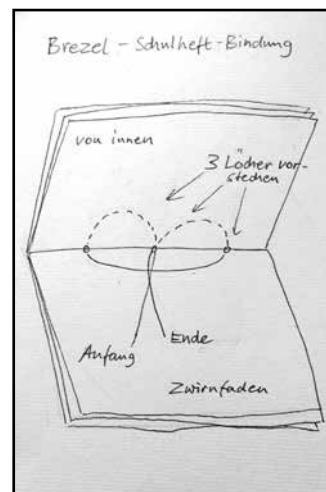 Brezel - Schulheft-Bindung
von innen
3 Löcher vor-
stechen
Anfang
Ende
Zwirnfaden